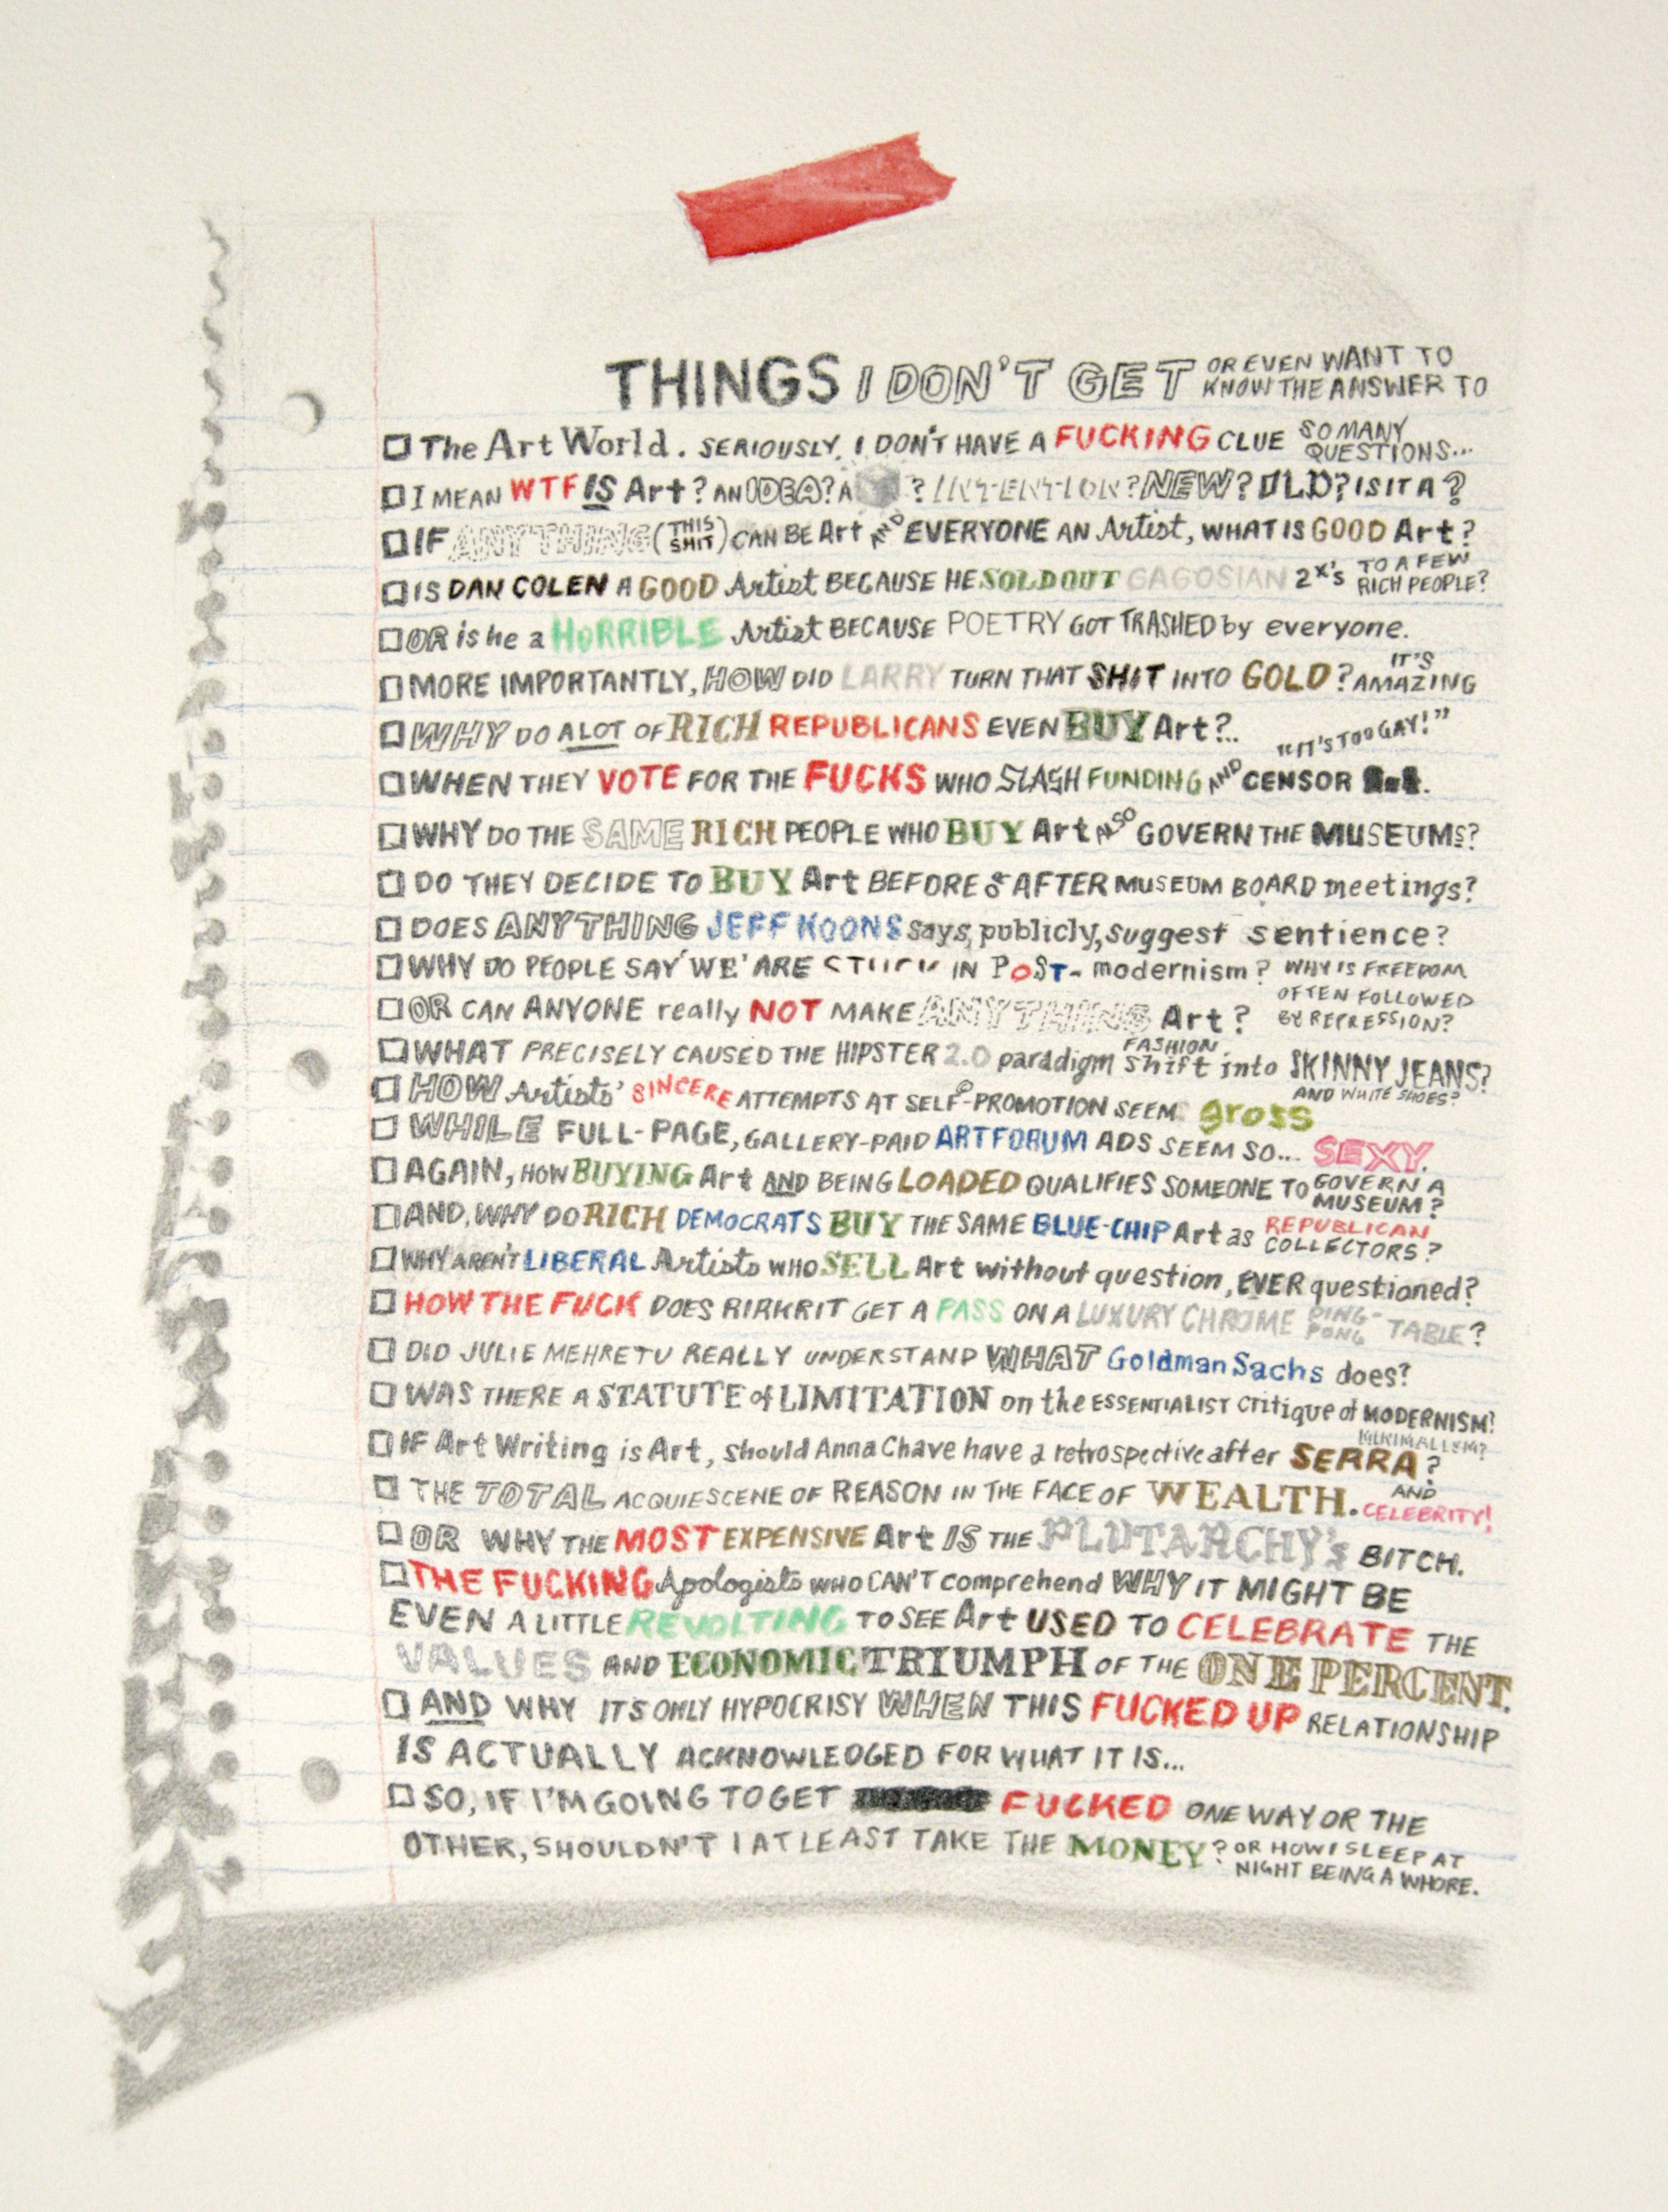 THINGS I DON'T GET OR EVEN WANT TO KNOW THE ANSWER TO
The Art World. SERIOUSLY. I DON'T HAVE A FUCKING CLUE SO MANY QUESTIONS...
I MEAN WTF IS Art? AN IDEA? A ? INTENTION? NEW? OLD? IS IT A ?
IF ANYTHING (THIS SHIT) CAN BE Art AND EVERYONE AN Artist, WHAT IS GOOD Art?
IS DAN COLEN A GOOD Artist BECAUSE HE SOLD OUT GAGOSIAN 2x's TO A FEW RICH PEOPLE?
OR is he a HORRIBLE Artist BECAUSE POETRY GOT TRASHED by everyone.
MORE IMPORTANTLY, HOW DID LARRY TURN THAT SHIT INTO GOLD? IT'S AMAZING
WHY DO A LOT OF RICH REPUBLICANS EVEN BUY Art?.. "IT'S TOO GAY!"
WHEN THEY VOTE FOR THE FUCKS WHO SLASH FUNDING AND CENSOR Art.
WHY DO THE SAME RICH PEOPLE WHO BUY Art ALSO GOVERN THE MUSEUMs?
DO THEY DECIDE TO BUY Art BEFORE or AFTER MUSEUM BOARD meetings?
DOES ANYTHING JEFF KOONS says, publicly, suggest sentience?
WHY DO PEOPLE SAY 'WE' ARE STUCK IN POST-modernism? WHY IS FREEDOM
OFTEN FOLLOWED BY REPRESSION?
OR CAN ANYONE really NOT MAKE ANYTHING Art?
WHAT PRECISELY CAUSED THE HIPSTER 2.0 paradigm FASHION shift into SKINNY JEANS? AND WHITE SHOES?
HOW Artists' SINCERE ATTEMPTS AT SELF-PROMOTION SEEM gross
WHILE FULL-PAGE, GALLERY-PAID ARTFORUM ADS SEEM SO... SEXY.
AGAIN, HOW BUYING Art AND BEING LOADED QUALIFIES SOMEONE TO GOVERN A MUSEUM?
AND, WHY DO RICH DEMOCRATS BUY THE SAME BLUE-CHIP Art as REPUBLICAN COLLECTORS?
WHY AREN'T LIBERAL Artists WHO SELL Art without question, EVER questioned?
HOW THE FUCK DOES RIRKRIT GET A PASS ON A LUXURY CHROME PING-PONG TABLE?
DID JULIE MEHRETU REALLY UNDERSTAND WHAT Goldman Sachs does?
WAS THERE A STATUTE of LIMITATION on the ESSENTIALIST critique of MODERNISM? MINIMALISM?
IF Art Writing is Art, should Anna Chave have a retrospective after SERRA?
THE TOTAL ACQUIESCENE OF REASON IN THE FACE OF WEALTH. AND CELEBRITY!
OR WHY THE MOST EXPENSIVE Art IS THE PLUTARCHY's BITCH.
THE FUCKING Apologists WHO CAN'T comprehend WHY IT MIGHT BE
EVEN A LITTLE REVOLTING TO SEE Art USED TO CELEBRATE THE
VALUES AND ECONOMIC TRIUMPH OF THE ONE PERCENT.
AND WHY IT'S ONLY HYPOCRISY WHEN THIS FUCKED UP RELATIONSHIP
IS ACTUALLY ACKNOWLEDGED FOR WHAT IT IS...
SO, IF I'M GOING TO GET FUCKED ONE WAY OR THE
OTHER, SHOULDN'T I AT LEAST TAKE THE MONEY? OR HOW I SLEEP AT NIGHT BEING A WHORE.